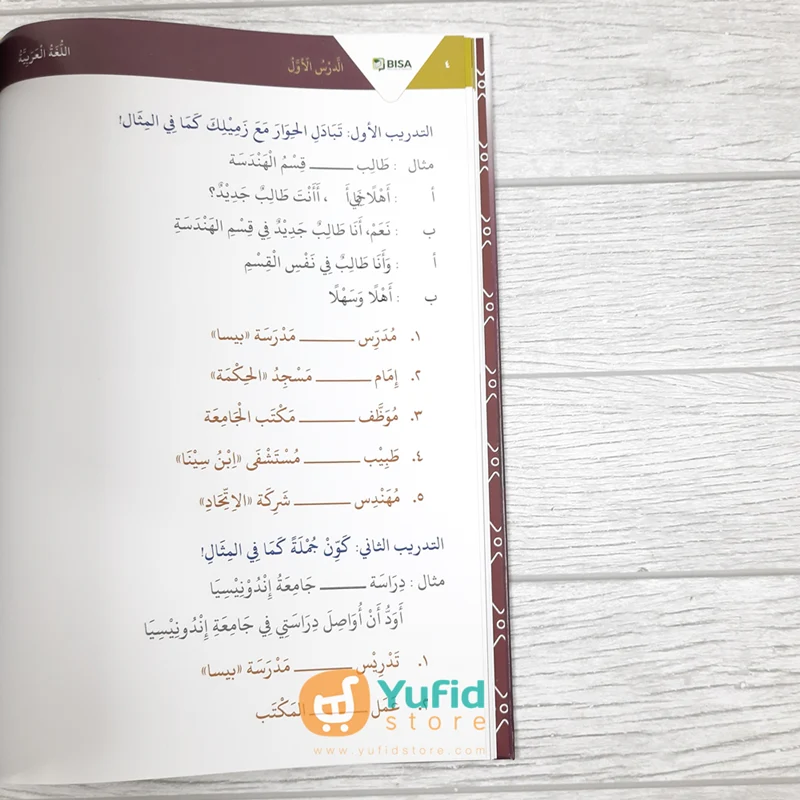 اللُّغَةُ الْعَرَبِيَّةُ
الدَّرْسُ الْأَوَّلُ
BISA
٤
التدريب الأول: تَبَادَلِ الحِوَارَ مَعَ زَمِيْلِكَ كَمَا فِي المِثَال!
مثال : طَالِب ــــــــ قِسْمُ الْهَنْدَسَة
أ : أَهْلًا ، أَأَنْتَ طَالِبٌ جَدِيْدٌ؟
ب : نَعَمْ، أَنَا طَالِبٌ جَدِيْدٌ فِي قِسْمِ الهَنْدَسَةِ
أ : وَأَنَا طَالِبٌ فِي نَفْسِ الْقِسْمِ
ب : أَهْلًا وَسَهْلًا
١. مُدَرِّس ــــــــ مَدْرَسَة «بيسا»
٢. إِمَام ــــــــ مَسْجِدُ «الحِكْمَة»
٣. مُوَظَّف ــــــــ مَكْتَب الْجَامِعَة
٤. طَبِيْب ــــــــ مُسْتَشْفَى «اِبْنُ سِيْنَا»
٥. مُهَنْدِس ــــــــ شَرِكَة «الاِتِّحَادِ»
التدريب الثاني: كَوِّنْ جُمْلَةً كَمَا فِي المِثَالِ!
مثال : دِرَاسَة ــــــــ جَامِعَةُ إِنْدُوْنِيْسِيَا
أَوَدُّ أَنْ أُوَاصِلَ دِرَاسَتِي فِي جَامِعَةِ إِنْدُونِيْسِيَا
١. تَدْرِيْس ــــــــ مَدْرَسَة «بيسا»
٢. عَمَل ــــــــ المَكْتَب
Yufid
store
www.yufidstore.com